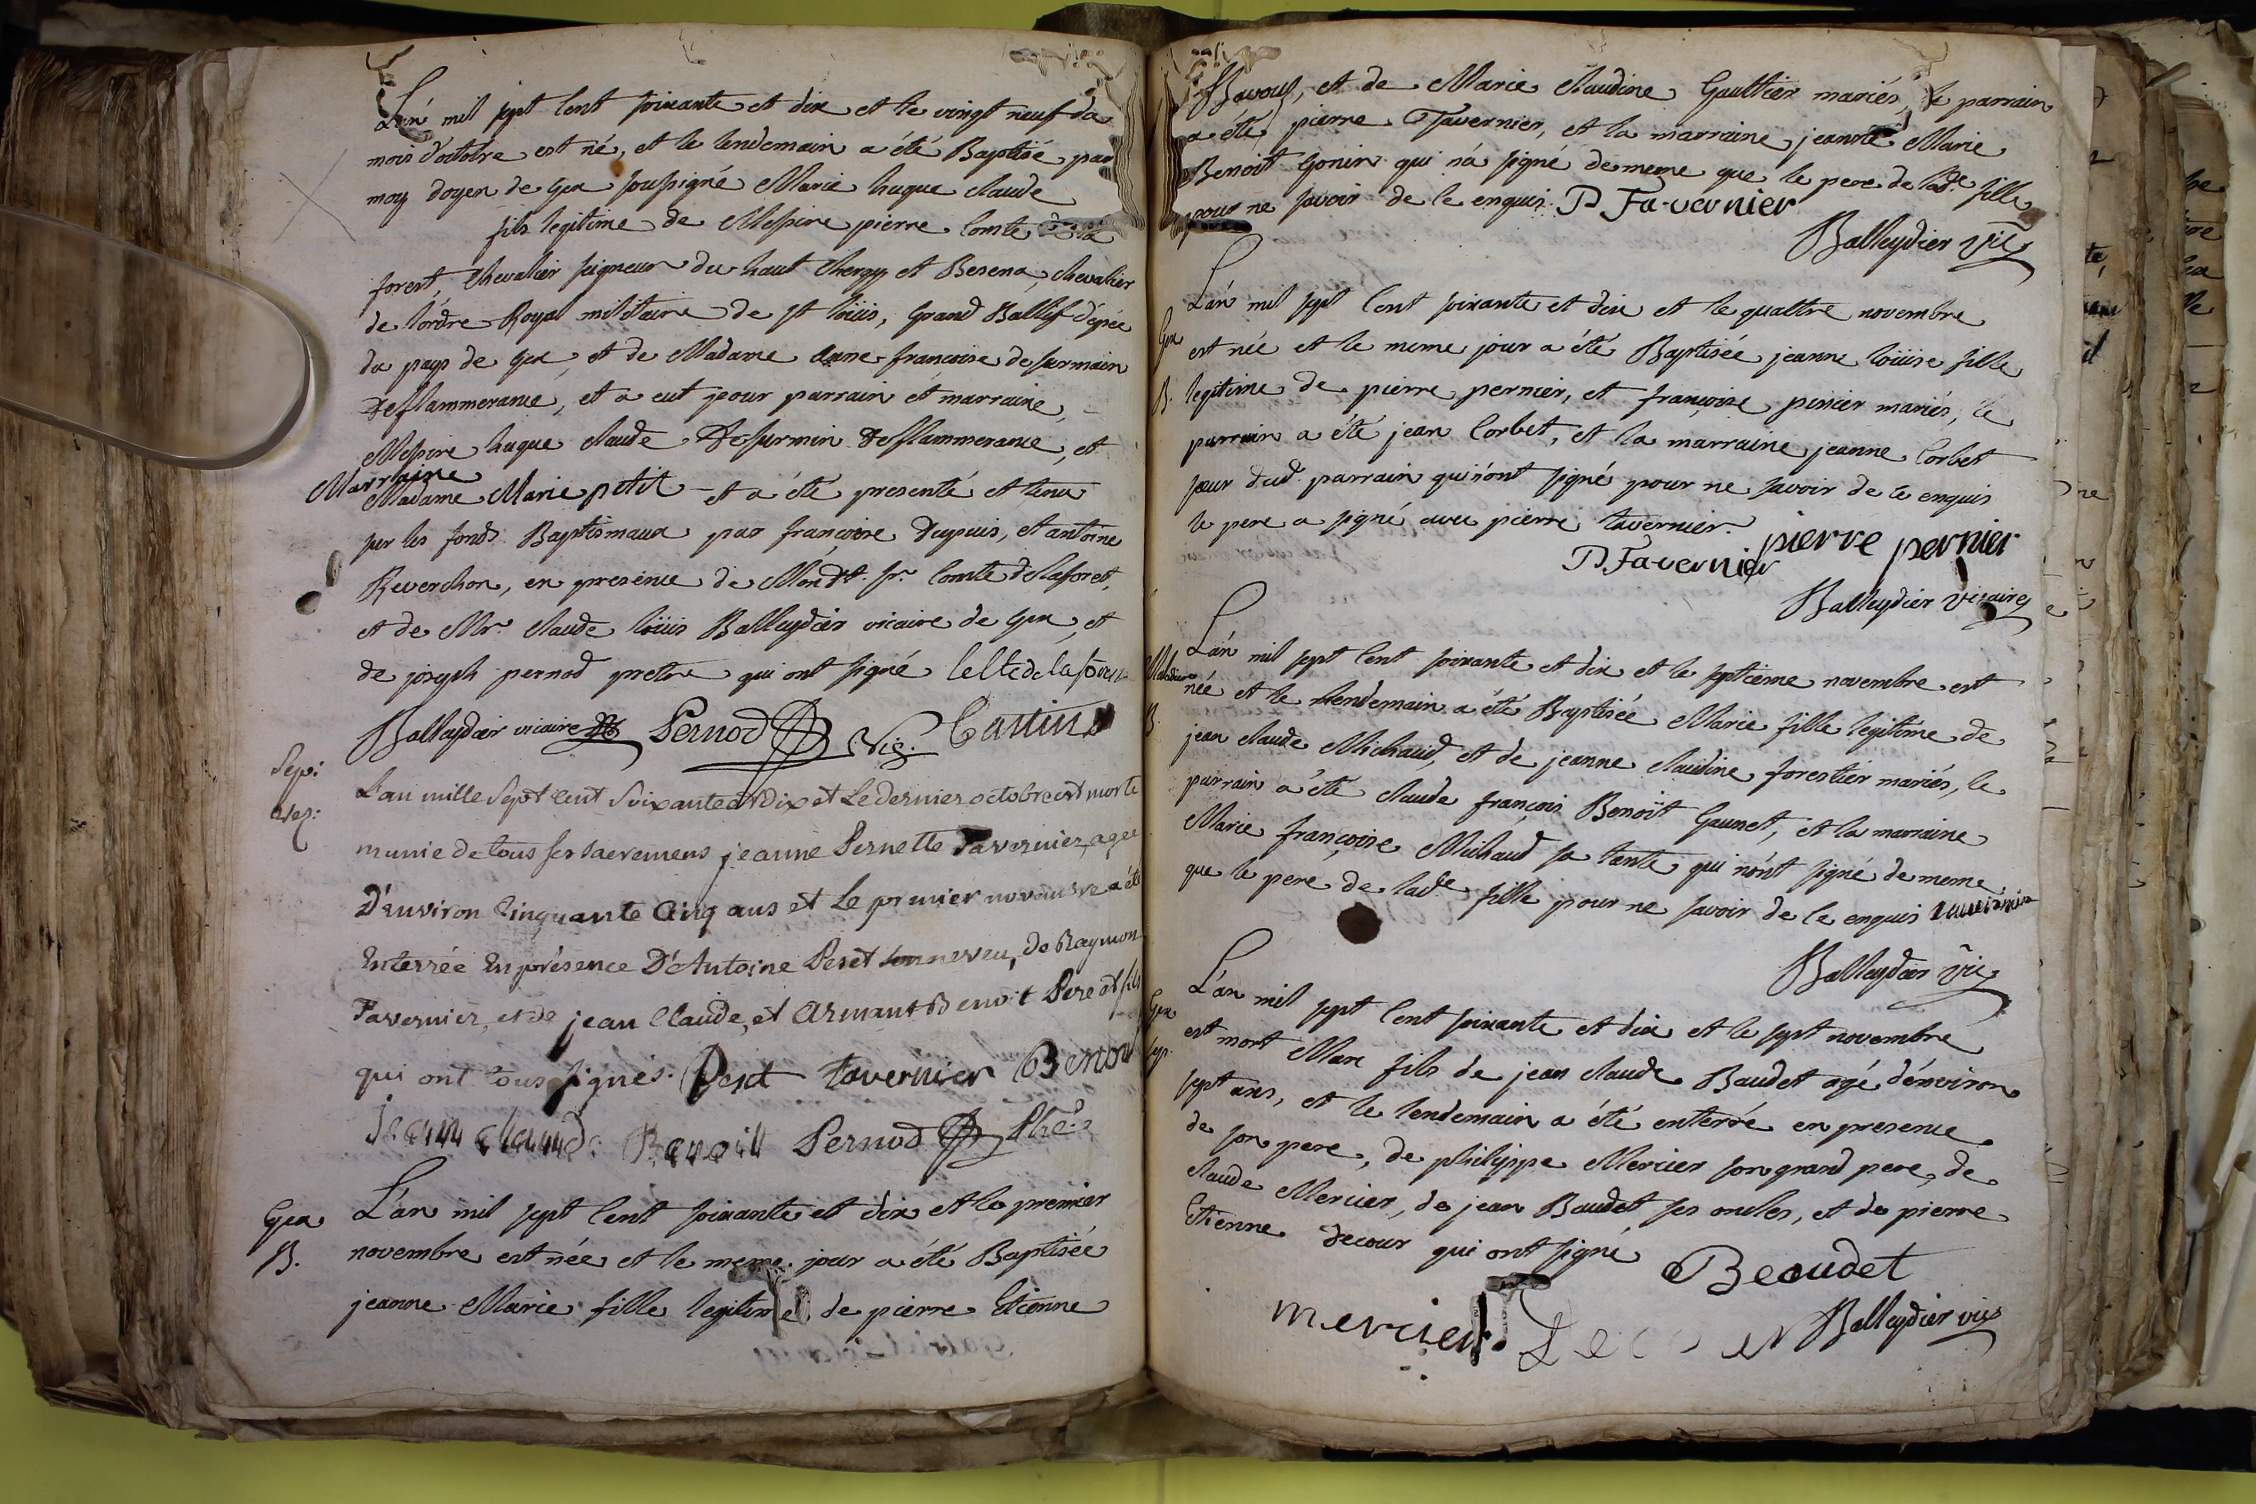 L'an mil sept cent soixante et dix et le vingt neuf du
mois d'octobre est né, et le lendemain a été Baptisé par
moy doyen de Gex soussigné Marie hugue claude
fils legitime de Messire pierre Comte de la
forest, chevalier seigneur du haut Chergy et Besena, chevalier
de l'ordre Royal militaire de st loüis, grand Ballif d'épée
du pays de Gex, et de Madame anne francoise de surmain
Deflammerance, et a eut pour parrain et marraine,
Messire hugue claude Desurmin Deflammerance, et
Marraine
Madame Marie petit et a été presenté et tenu
sur les fonds Baptismaux par francoise Dupuis, et antoine
Reverchon, en presence de Mond.t sr. Comte delaforet,
et de Mr. claude loüis Balleydier vicaire de Gex, et
de joseph pernod pretre qui ont signé le Cte de laforest
Balleydier vicaire Pernod Vic. Castin
Sep:
L'an mille Sept cent Soixante et Dix et Le dernier octobre est morte
munie de tous ses sacremens jeanne Pernette Tavernier, agée
D'environ Cinquante Cinq ans et Le premier novembre a été
Enterrée En présence D'Antoine Peset son neveu, de Raymon
Tavernier, et de jean Claude, et Armant Benoit Pere et fils
qui ont tous signés. Peset tavernier Benoit
Jean claude Benoitt Pernod Ptre
Gex
B.
L'an mil sept cent soixante et dix et le premier
novembre est née et le meme jour a été Baptisée
jeanne Marie fille legitime de pierre Etienne
Bavouz, et de Marie claudine Gaultier mariés, le parrain
a été pierre Tavernier, et la marraine jeanne Marie
Benoit Gonin qui n'a signé de meme que le pere de lade fille
pour ne savoir de ce enquis. P Tavernier
Balleydier vic
Gex
B.
L'an mil sept cent soixante et dix et le quattre novembre
est née et le meme jour a été Baptisée jeanne loüise fille
legitime de pierre pernier, et françoise perrier mariés, le
parrain a été jean Corbet, et la marraine jeanne Corbet
sœur dud. parrain qui n'ont signé pour ne savoir de ce enquis
le pere a signé avec pierre tavernier.
P. Tavernier pierre pernier
Balleydier vicaire
B.
L'an mil sept cent soixante et dix et le septieme novembre est
née et le lendemain a été Baptisée Marie fille legitime de
jean claude Michaud, et de jeanne claudine forestier mariés, le
parrain a été claude françois Benoit Gaunet, et la marraine
Marie françoise Michaud sa tante qui n'ont signé de meme
que le pere de lade fille pour ne savoir de ce enquis
Balleydier vic
Gex
sep.
L'an mil sept cent soixante et dix et le sept novembre
est mort Marc fils de jean claude Baudet agé d'environ
sept ans, et le lendemain a été enterré en presence
de son pere, de philippe Mercier son grand pere, de
claude Mercier, de jean Baudet ses oncles, et de pierre
Etienne decour qui ont signé
Beaudet
mercier Decour Balleydier vic